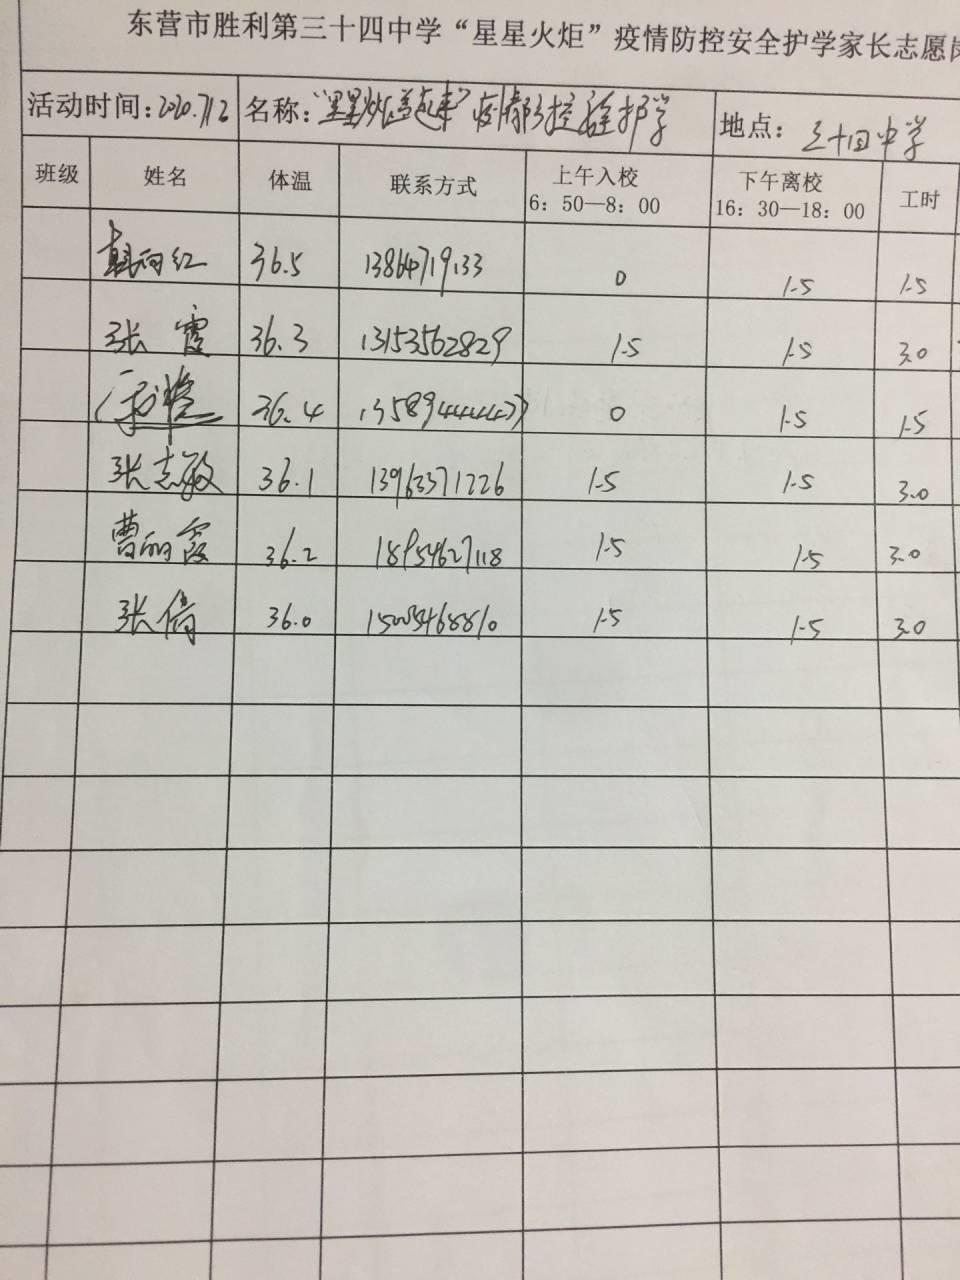 东营市胜利第三十四中学“星星火炬”疫情防控安全护学家长志愿岗
活动时间：2020.7.12 名称：“星星火炬 起来”疫情防控 护学 地点：三十四中学
班级 姓名 体温 联系方式 上午入校 6：50—8：00 下午离校 16：30—18：00 工时
红 36.5 13864719133 0 1.5 1.5
张霞 36.3 13153562829 1.5 1.5 3.0
36.4 0 1.5 1.5
张志敏 36.1 13963371226 1.5 1.5 3.0
曹丽霞 36.2 18954627118 1.5 1.5 3.0
张倩 36.0 1.5 1.5 3.0